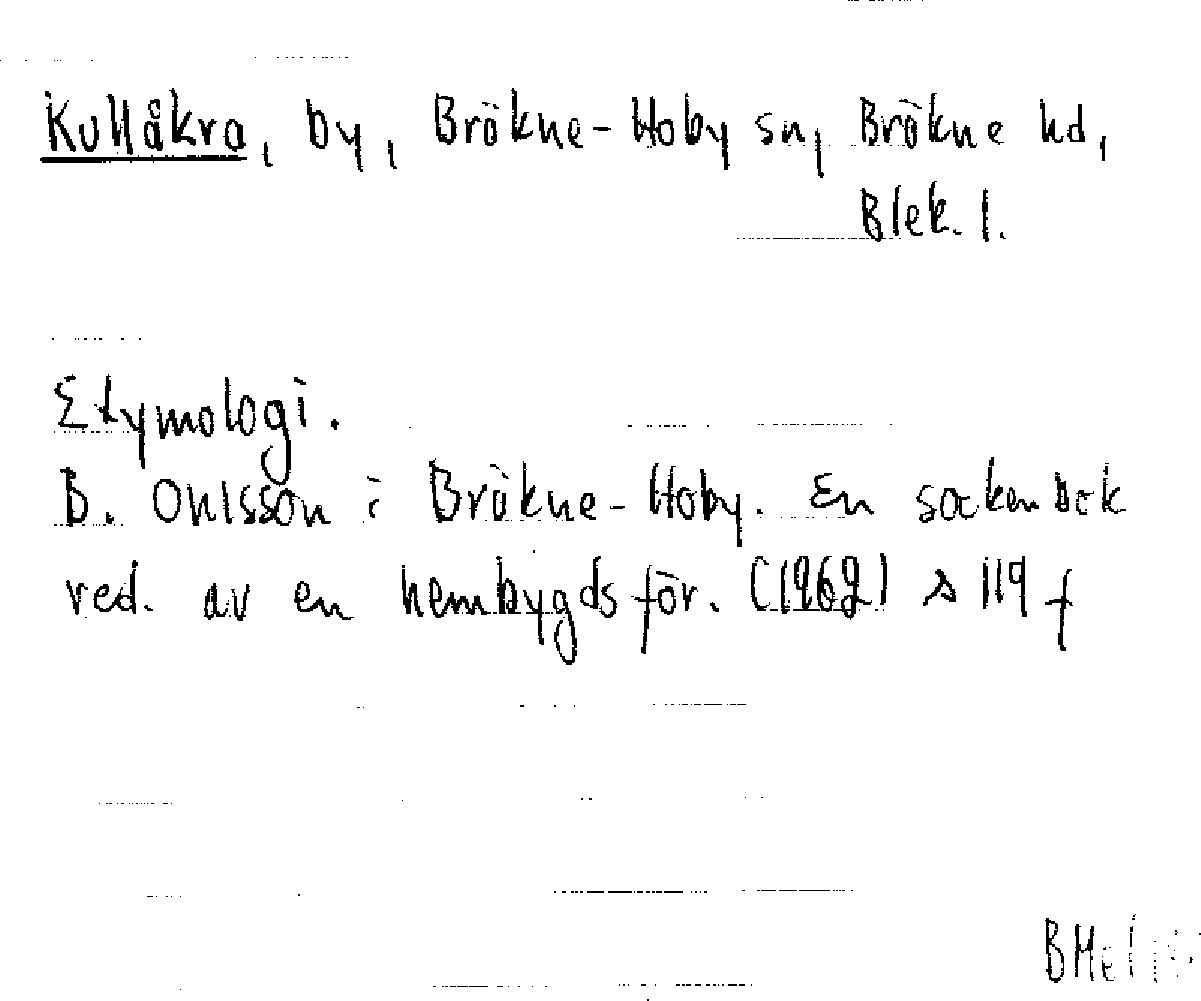 Kullåkra, by, Bräkne-Hoby sn, Bräkne hd,
Blek. l.
Etymologi.
B. Ohlsson i Bräkne-Hoby. En sockenbok
red. av en hembygdsför. (1962) s 119 f